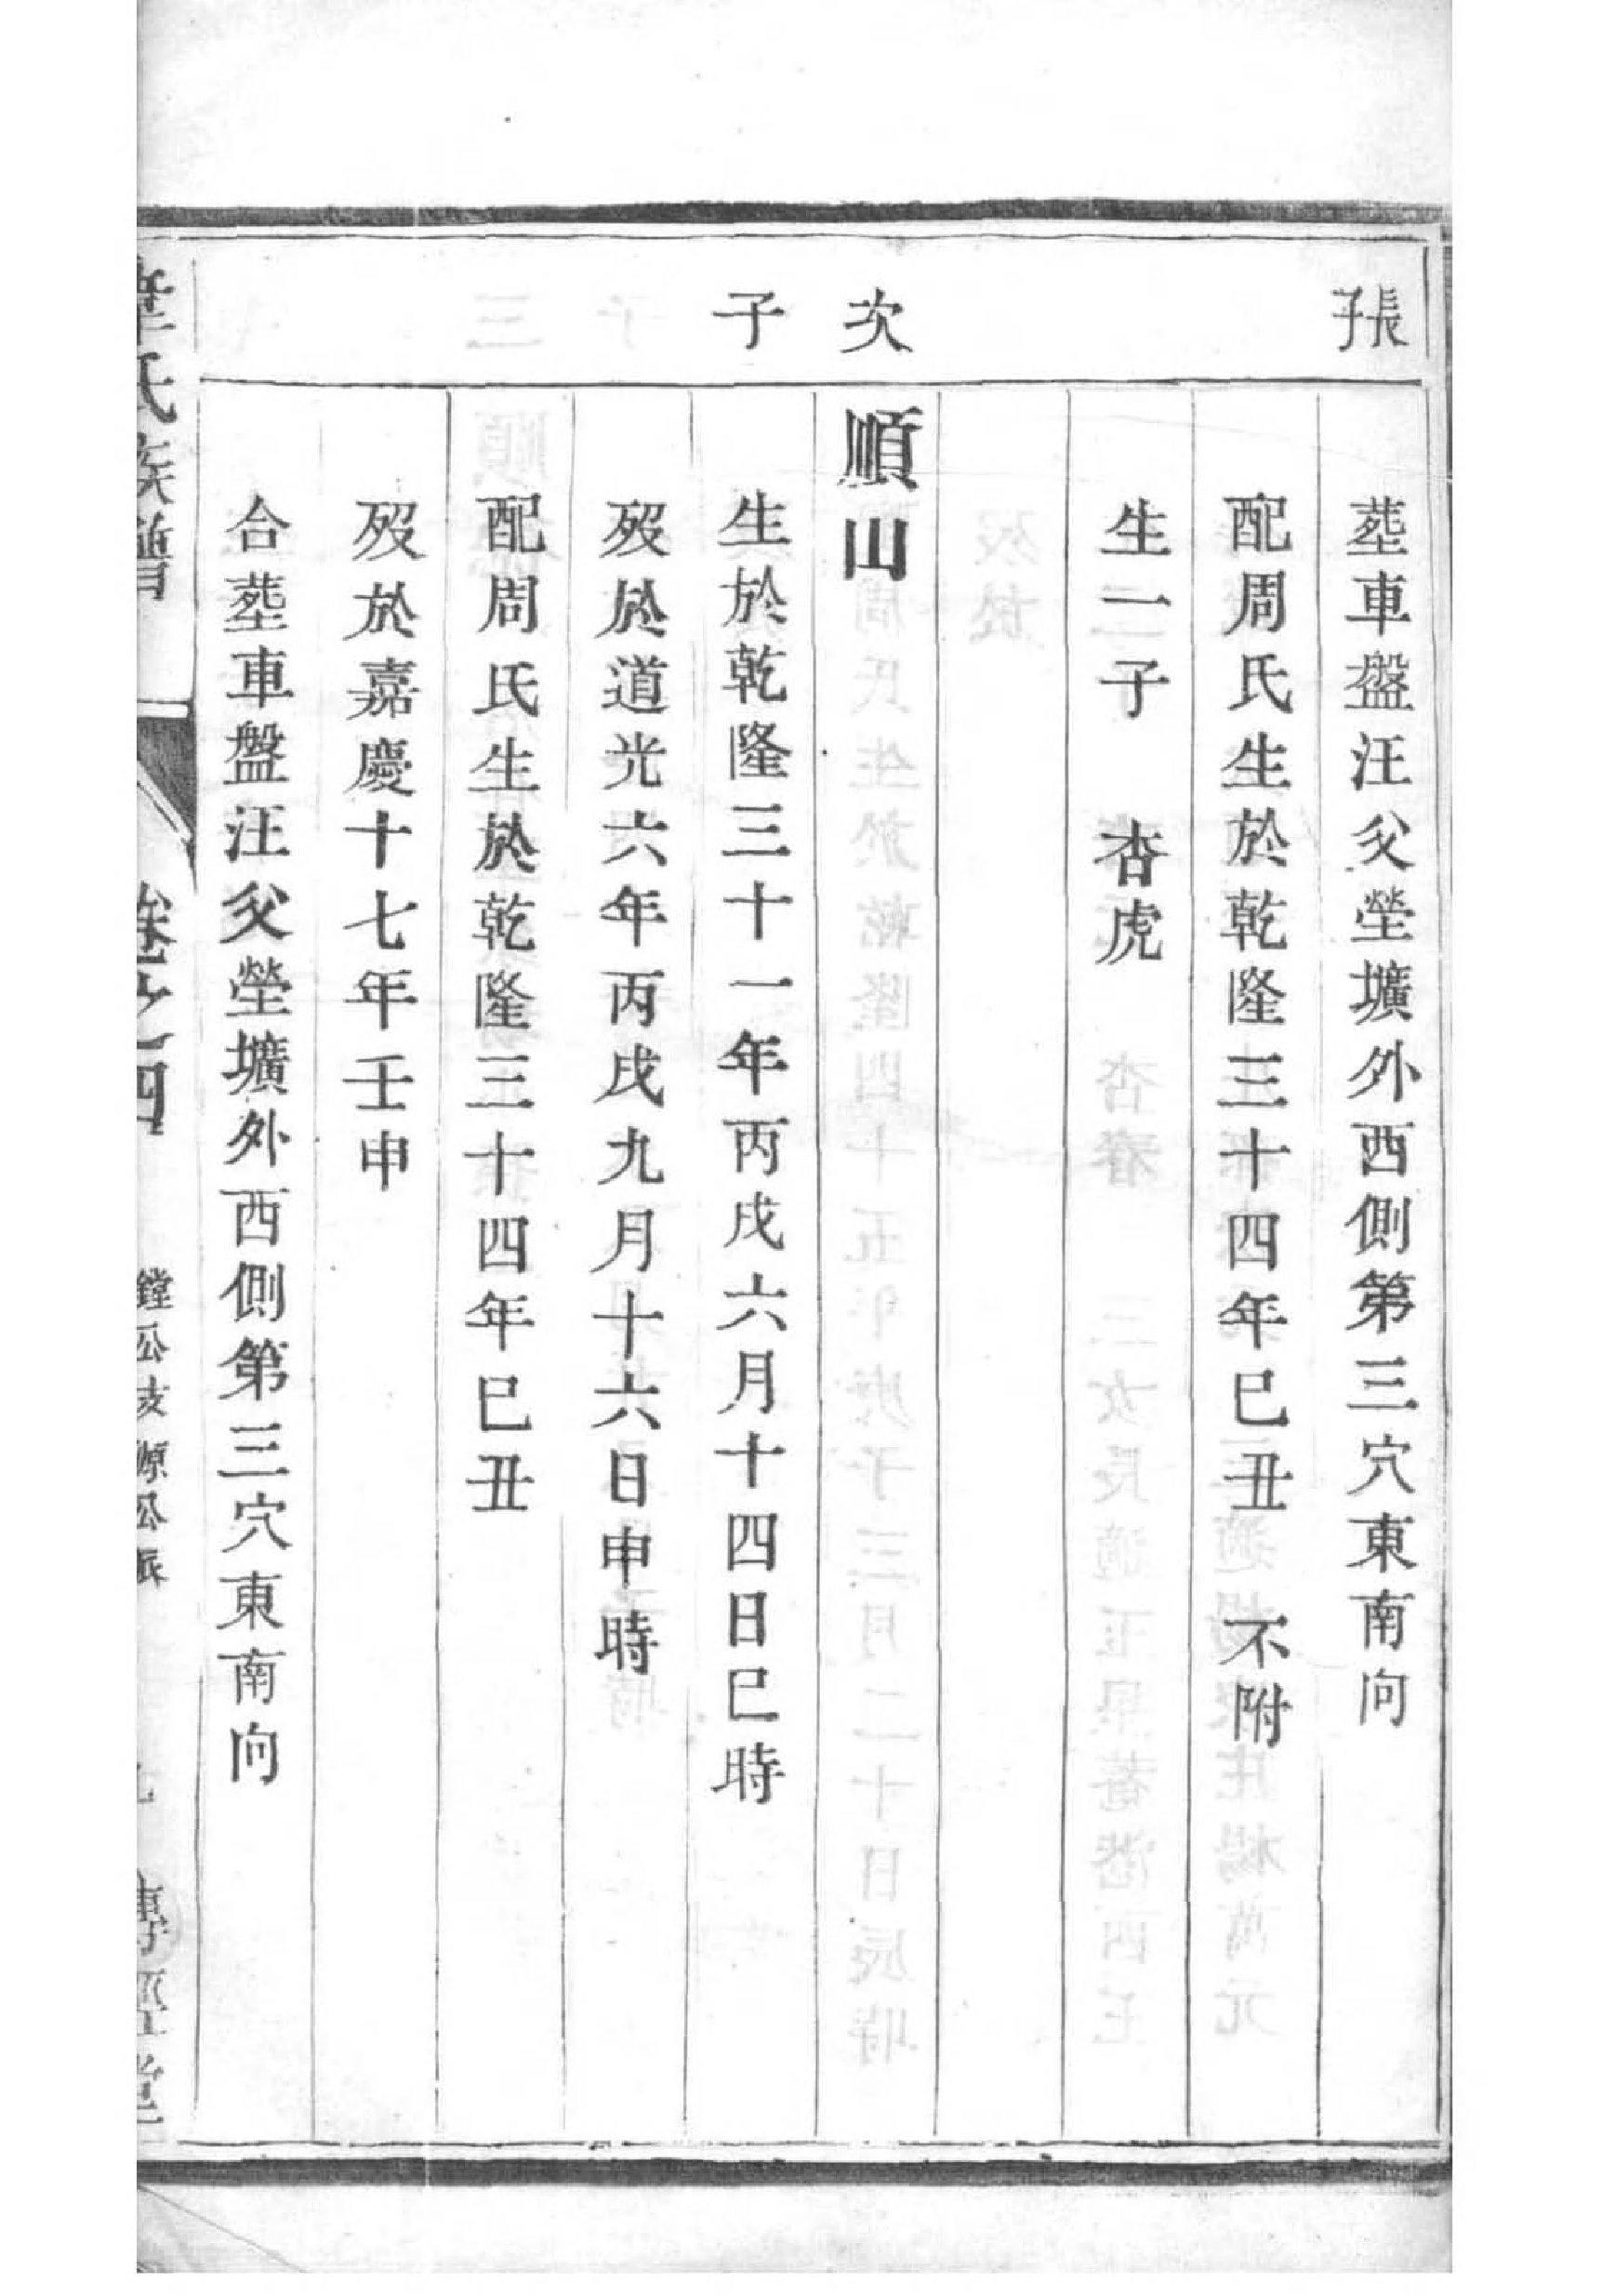 張子
葬車盤汪父塋壙外西側第三穴東南向
配周氏生於乾隆三十四年巳丑 不附
生一子 杏虎
次子
順山
生於乾隆三十一年丙戌六月十四日巳時
歿於道光六年丙戌九月十六日申時
配周氏生於乾隆三十四年巳丑
歿於嘉慶十七年壬申
合葬車盤汪父塋壙外西側第三穴東南向
氏族譜
卷之四
鏜公支 源公派
傳經堂